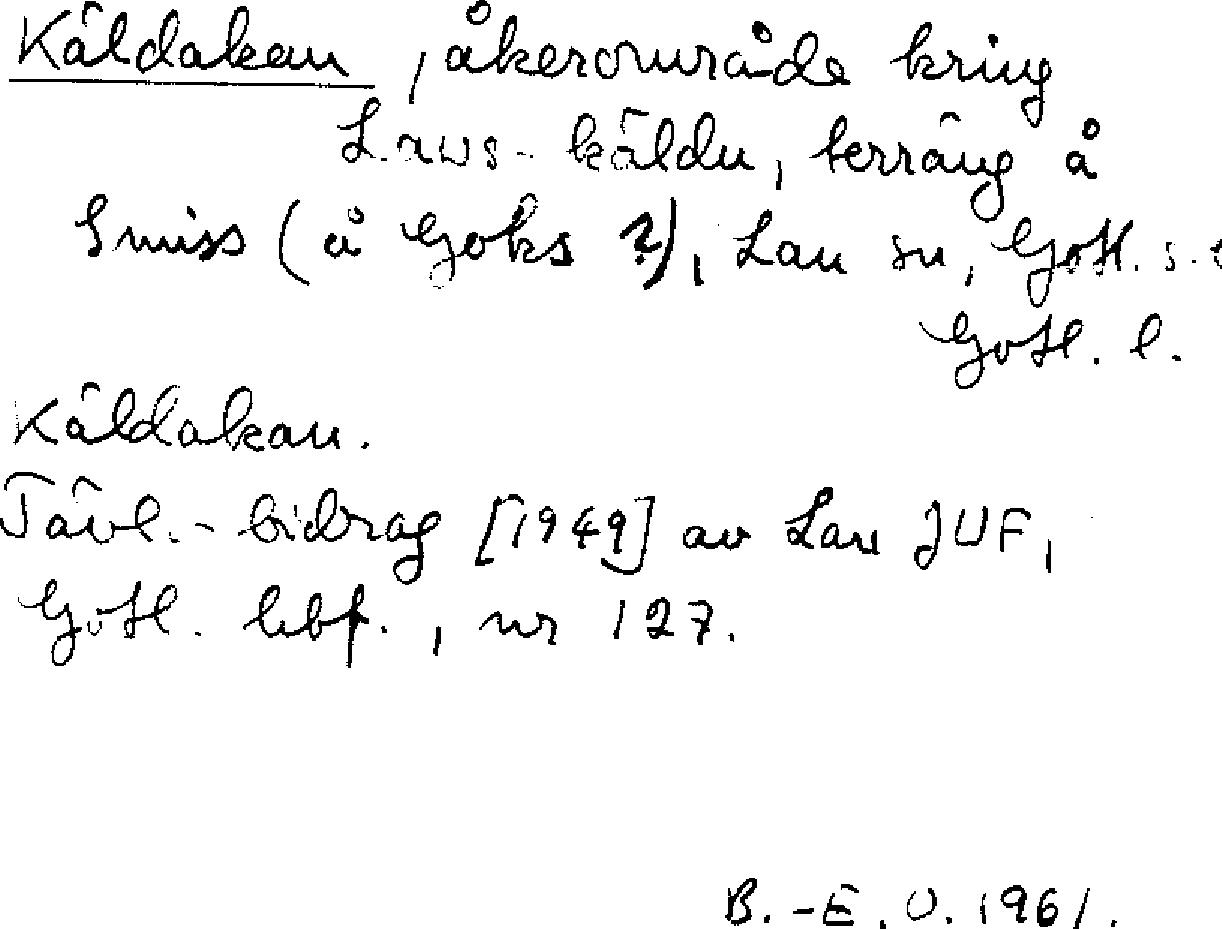 Käldakan, åkerområde kring
Laus-käldu, terräng å
Smiss (å Goks ?), Lau sn, Gotl. s.
Gotl. l.
Käldakan.
Tävl.-bidrag [1949] av Lau JUF,
Gotl. lebf., nr 127.
B.-E. O. 1961.